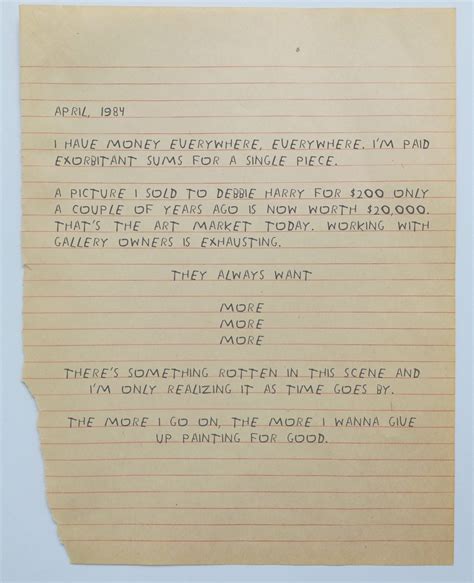 APRIL, 1984
I HAVE MONEY EVERYWHERE, EVERYWHERE. I'M PAID
EXORBITANT SUMS FOR A SINGLE PIECE.
A PICTURE I SOLD TO DEBBIE HARRY FOR $200 ONLY
A COUPLE OF YEARS AGO IS NOW WORTH $20,000.
THAT'S THE ART MARKET TODAY. WORKING WITH
GALLERY OWNERS IS EXHAUSTING.
THEY ALWAYS WANT
MORE
MORE
MORE
THERE'S SOMETHING ROTTEN IN THIS SCENE AND
I'M ONLY REALIZING IT AS TIME GOES BY.
THE MORE I GO ON, THE MORE I WANNA GIVE
UP PAINTING FOR GOOD.